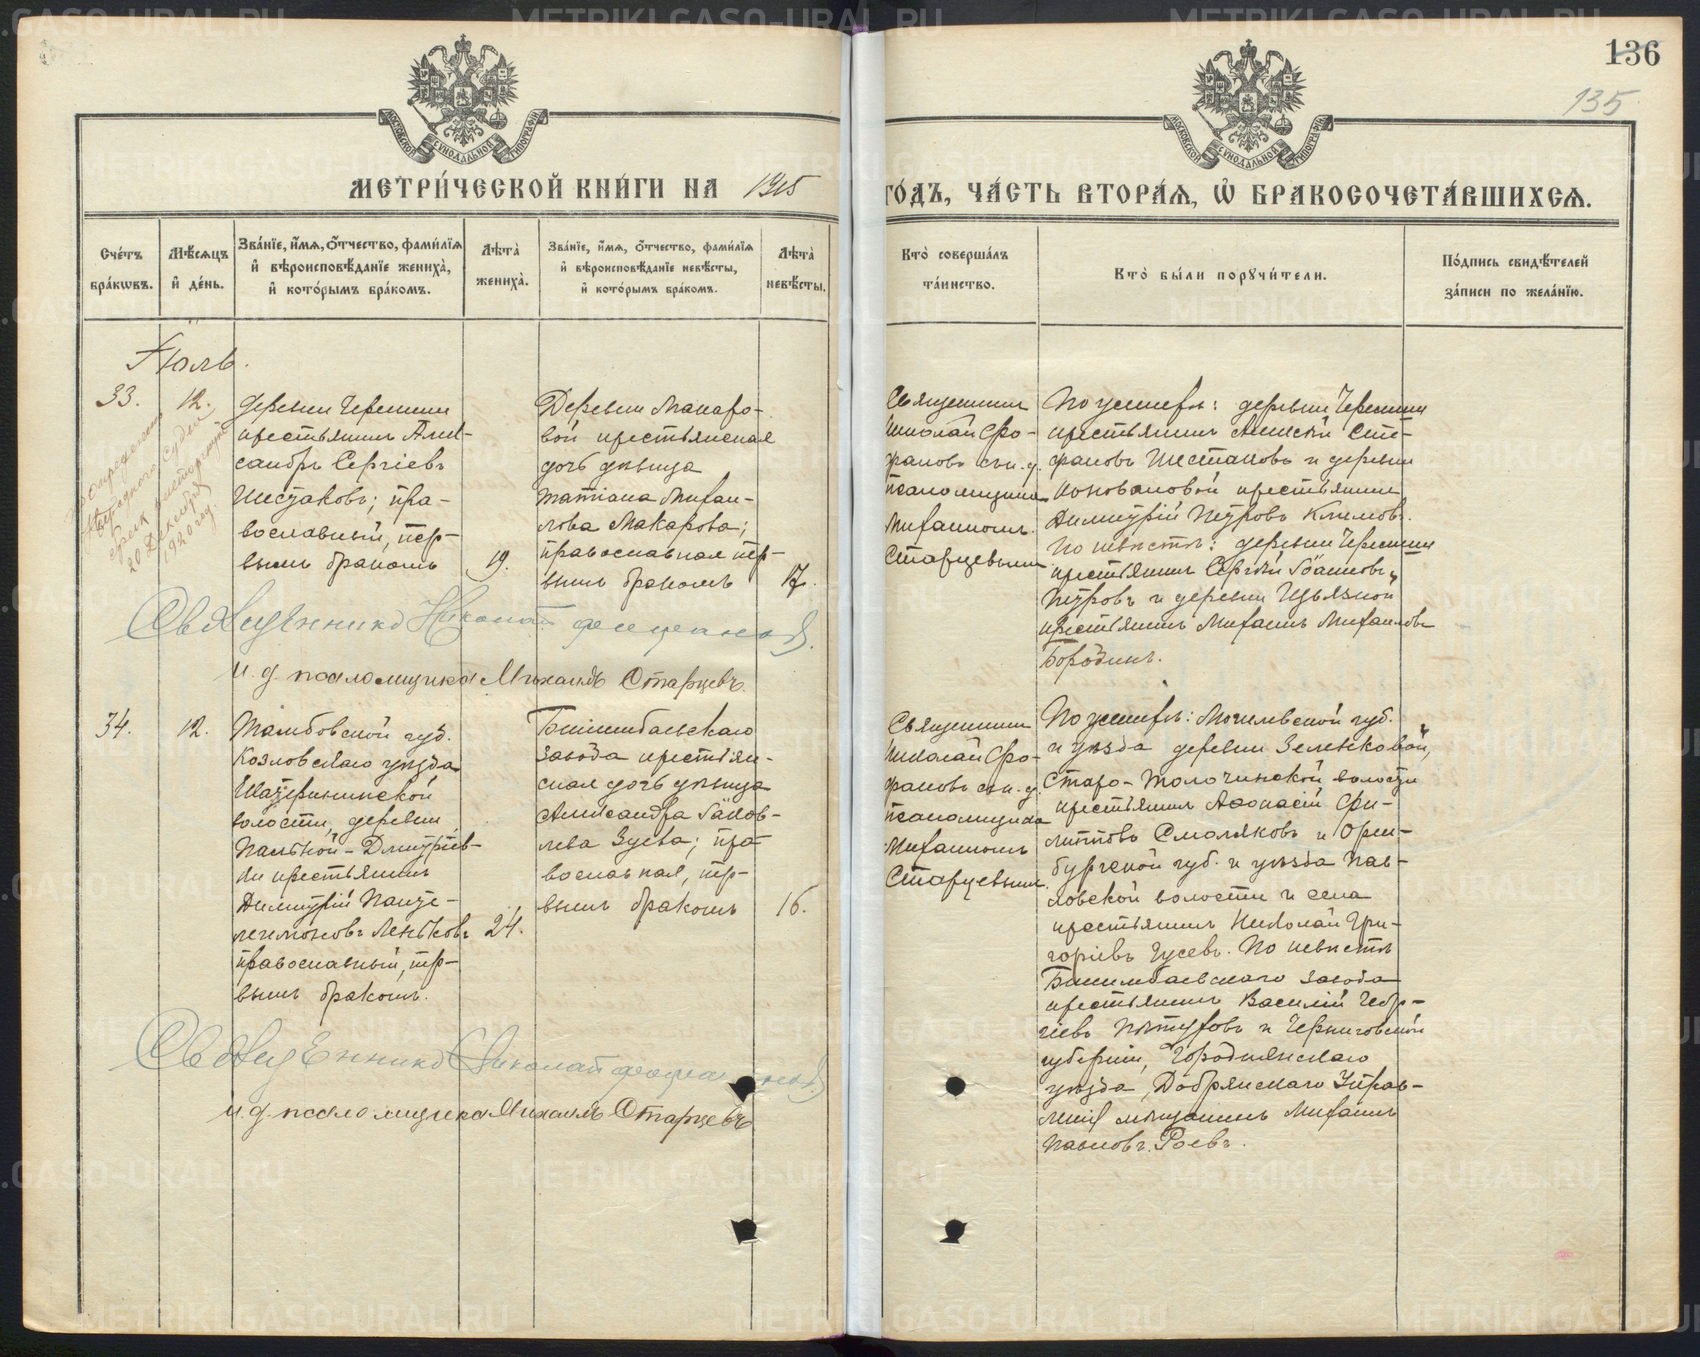 136
135
МЕТРИ́ЧЕСКОЙ КНИ́ГИ НА 1915 ГО́ДЪ, ЧА́СТЬ ВТОРА́Я, Ѽ БРАКОСОЧЕТА́ВШИХСЯ.
Сче́тъ бра́кѡвъ.
Мѣ́сяцъ и҆ де́нь.
Зва́нїе, и҆́мя, ѻ҆́тчество, фами́лїя и҆ вѣроисповѣ́данїе жениха̀, и҆ кото́рымъ бра́комъ.
Лѣта̀ жениха̀.
Зва́нїе, и҆́мя, ѻ҆́тчество, фами́лїя и҆ вѣроисповѣ́данїе невѣ́сты, и҆ кото́рымъ бра́комъ.
Лѣта̀ невѣ́сты.
Кто̀ соверша́лъ та́инство.
Кто̀ бы́ли порꙋчи́тели.
По́дпись свидѣ́телей за́писи по жела́нїю.
Іюль.
33.
12.
Деревни Черемши
крестьянинъ Алек-
сандръ Сергіевъ
Шестаковъ; пра-
вославный, пер-
вымъ бракомъ
19.
Деревни Макаро-
вой крестьянская
дочь дѣвица
Татіана Михаи-
лова Макарова;
православная пер-
вымъ бракомъ
17.
Священникъ
Николай Фео-
фановъ съ и. д.
псаломщика
Михаиломъ
Старцевымъ
По женихѣ: деревни Черемши
крестьянинъ Алексѣй Сте-
фановъ Шестаковъ и деревни
Коноваловой крестьянинъ
Димитрій Петровъ Климовъ.
По невѣстѣ: деревни Черемши
крестьянинъ Сергѣй Іоанновъ
Петровъ и деревни
крестьянинъ Михаилъ Михаиловъ
Бородинъ.
20 Декабря
1920 год.
Священникъ Николай Феофановъ.
и. д. псаломщика Михаилъ Старцевъ.
34.
12.
Тамбовской губ.
Козловскаго уѣзда
Екатерининской
волости, деревни
Пальной-Дмитріев-
ки крестьянинъ
Димитрій Панте-
леимоновъ Леньковъ
православный, пер-
вымъ бракомъ.
24.
Билимбаевскаго
завода крестьян-
ская дочь дѣвица
Александра Іаков-
лева Зуева; пра-
вославная, пер-
вымъ бракомъ
16.
Священникъ
Николай Фео-
фановъ съ и. д.
псаломщика
Михаиломъ
Старцевымъ.
По женихѣ: Могилевской губ.
и уѣзда деревни Зеленковой,
Старо-Толочинской волости
крестьянинъ Аѳонасій Фи-
липповъ Смоляковъ и Орен-
бургской губ. и уѣзда Пав-
ловской волости и села
крестьянинъ Николай Гри-
горіевъ Гусевъ. По невѣстѣ
Билимбаевскаго завода
крестьянинъ Василій Геор-
гіевъ Пѣтуховъ и Черниговской
губерніи, Городнянскаго
уѣзда, Добрянскаго Управ-
ленія мѣщанинъ Михаилъ
Павловъ Роевъ.
Священникъ Николай Феофановъ
и. д. псаломщика Михаилъ Старцевъ
METRIKI.GASO-URAL.RU